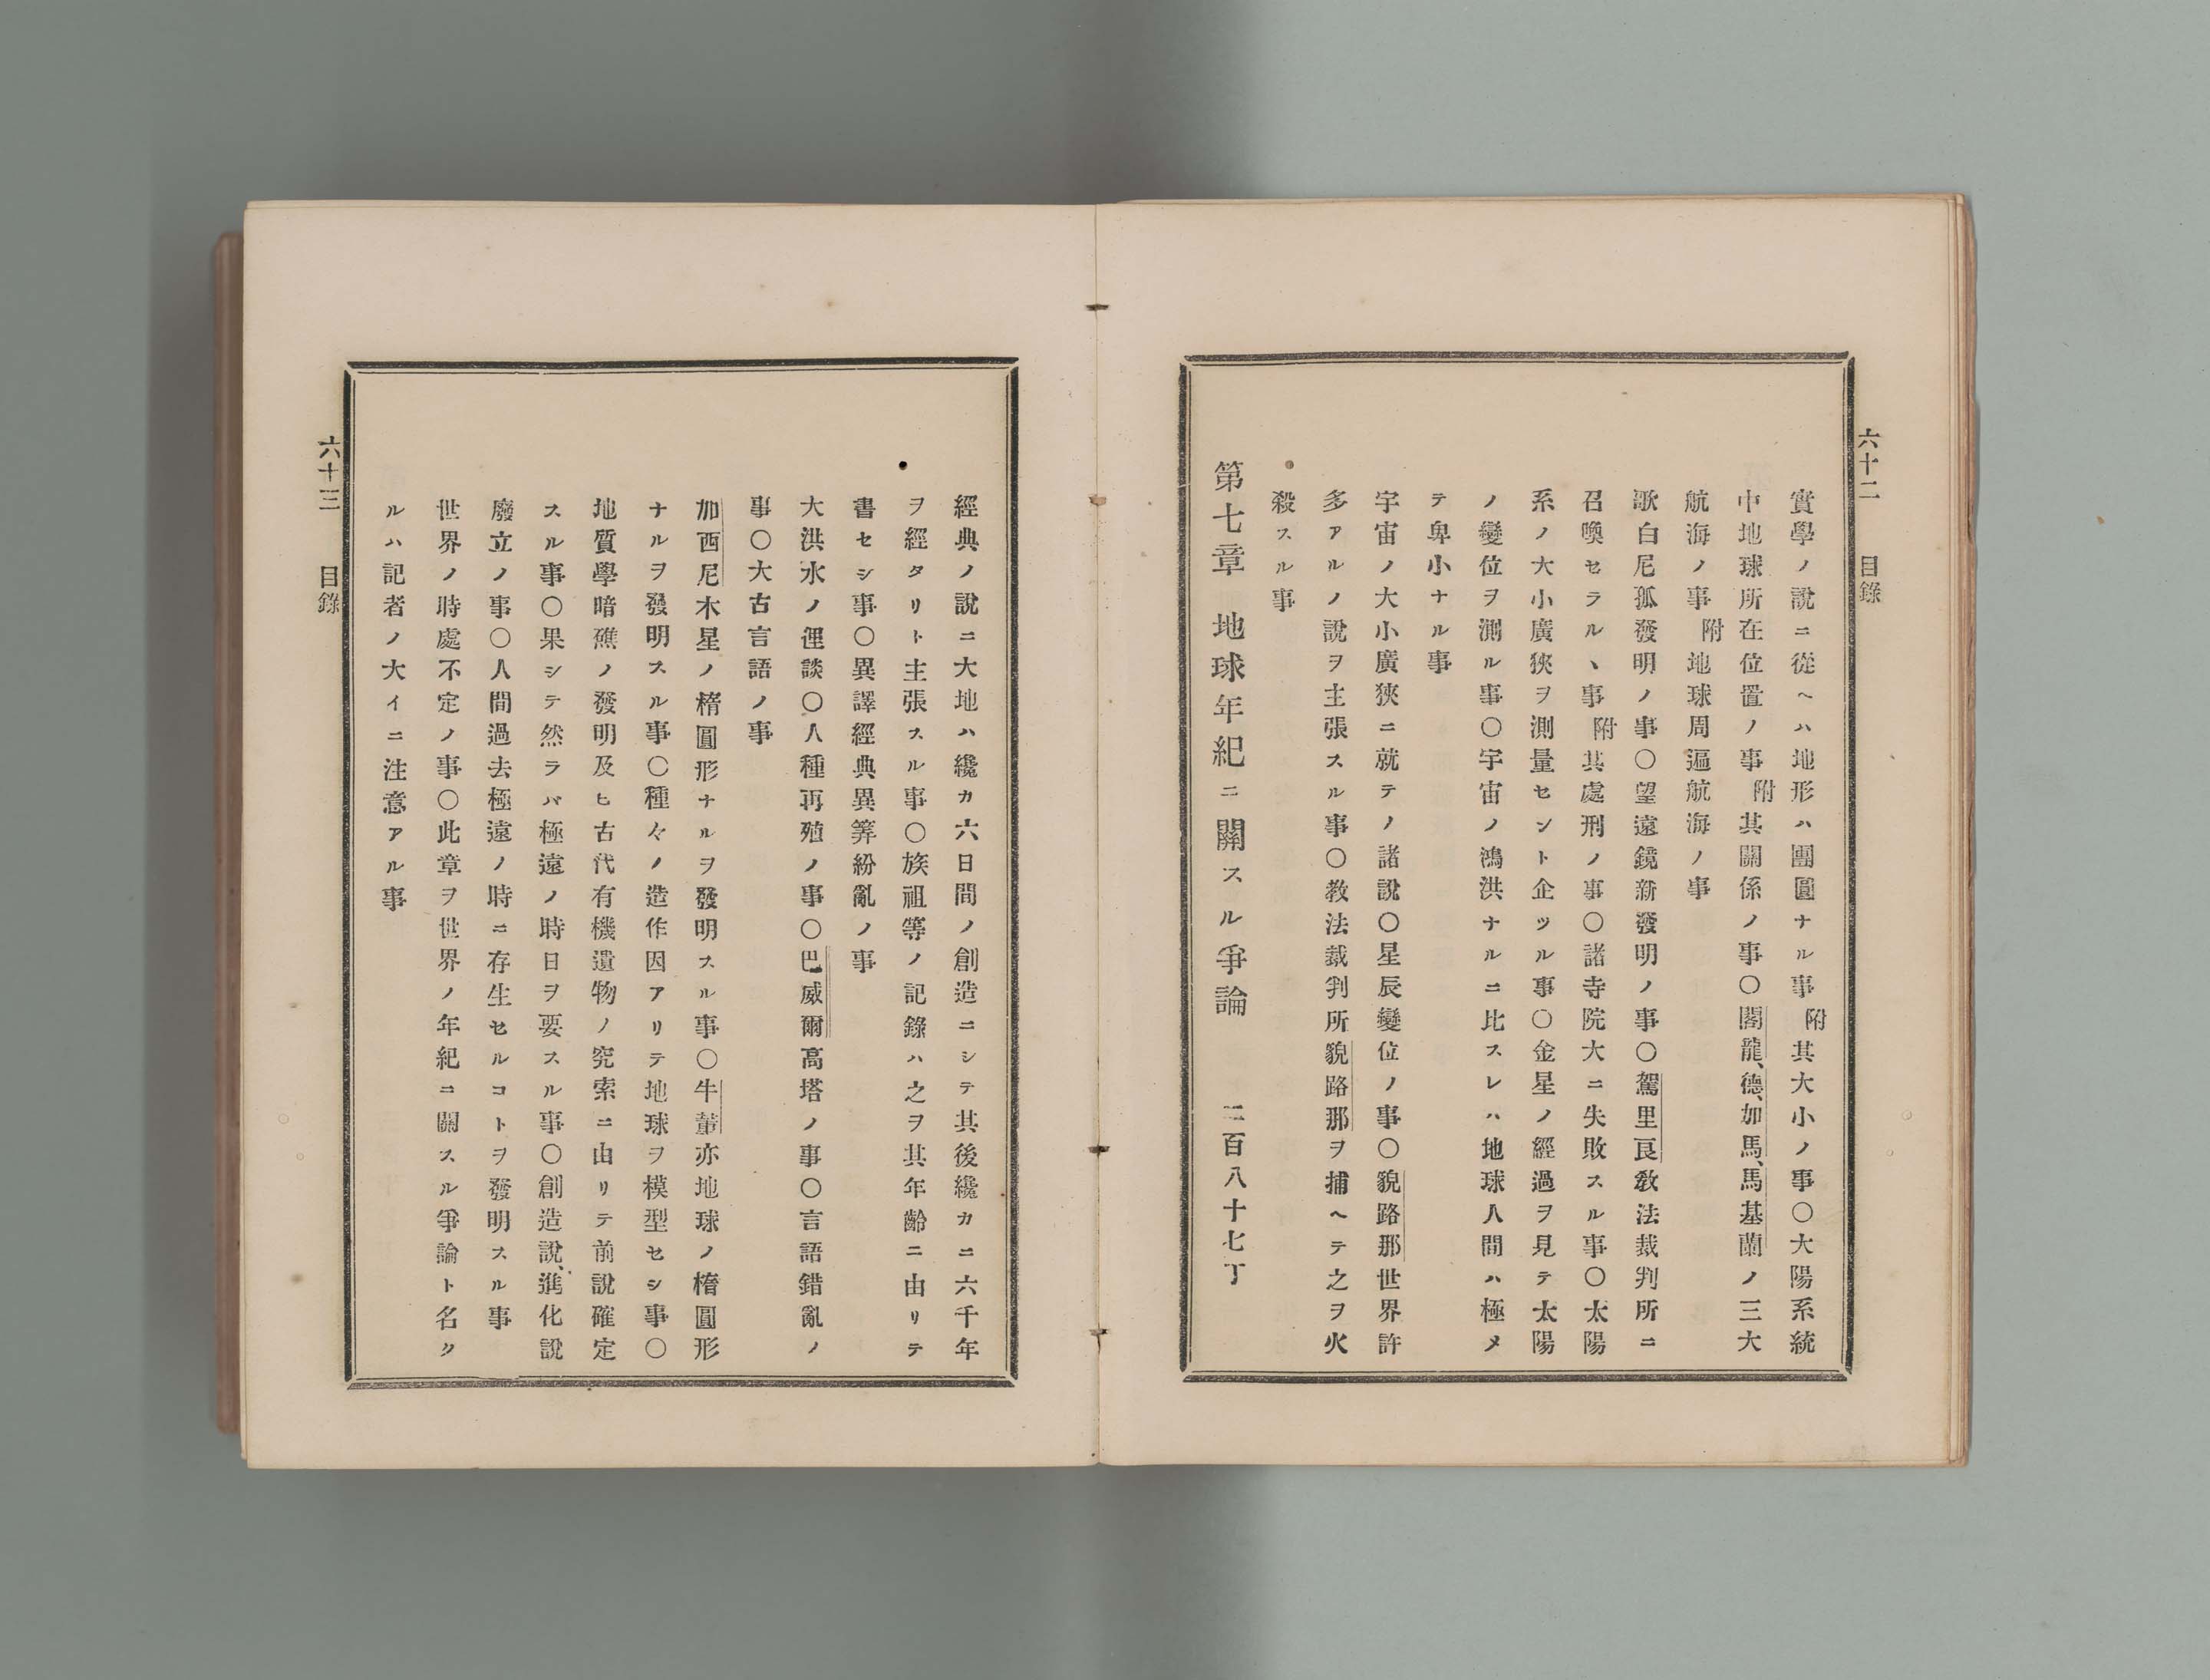 六十二　目錄
實學ノ說ニ從ヘハ地形ハ團圓ナル事附其大小ノ事〇大陽系統
中地球所在位置ノ事附其關係ノ事〇閣龍、德、加馬、馬基蘭ノ三大
航海ノ事附地球周遍航海ノ事
歌白尼孤發明ノ事〇望遠鏡新發明ノ事〇駕里良敎法裁判所ニ
召喚セラルヽ事附其處刑ノ事〇諸寺院大ニ失敗スル事〇太陽
系ノ大小廣狹ヲ測量セント企ツル事〇金星ノ經過ヲ見テ太陽
ノ變位ヲ測ル事〇宇宙ノ鴻洪ナルニ比スレハ地球人間ハ極メ
テ卑小ナル事
宇宙ノ大小廣狹ニ就テノ諸說〇星辰變位ノ事〇貌路那世界許
多アルノ說ヲ主張スル事〇敎法裁判所貌路那ヲ捕ヘテ之ヲ火
殺スル事
第七章　地球年紀ニ關スル爭論　二百八十七丁
經典ノ說ニ大地ハ纔カ六日間ノ創造ニシテ其後纔カニ六千年
ヲ經タリト主張スル事〇族祖等ノ記錄ハ之ヲ其年齡ニ由リテ
書セシ事〇異譯經典異筭紛亂ノ事
大洪水ノ俚談〇人種再殖ノ事〇巴威爾高塔ノ事〇言語錯亂ノ
事〇大古言語ノ事
加西尼木星ノ楕圓形ナルヲ發明スル事〇牛董亦地球ノ楕圓形
ナルヲ發明スル事〇種々ノ造作因アリテ地球ヲ模型セシ事〇
地質學暗礁ノ發明及ヒ古代有機遺物ノ究索ニ由リテ前說確定
スル事〇果シテ然ラバ極遠ノ時日ヲ要スル事〇創造說、進化說
廢立ノ事〇人間過去極遠ノ時ニ存生セルコトヲ發明スル事
世界ノ時處不定ノ事〇此章ヲ世界ノ年紀ニ關スル爭論ト名ク
ルハ記者ノ大イニ注意アル事
六十三　目錄